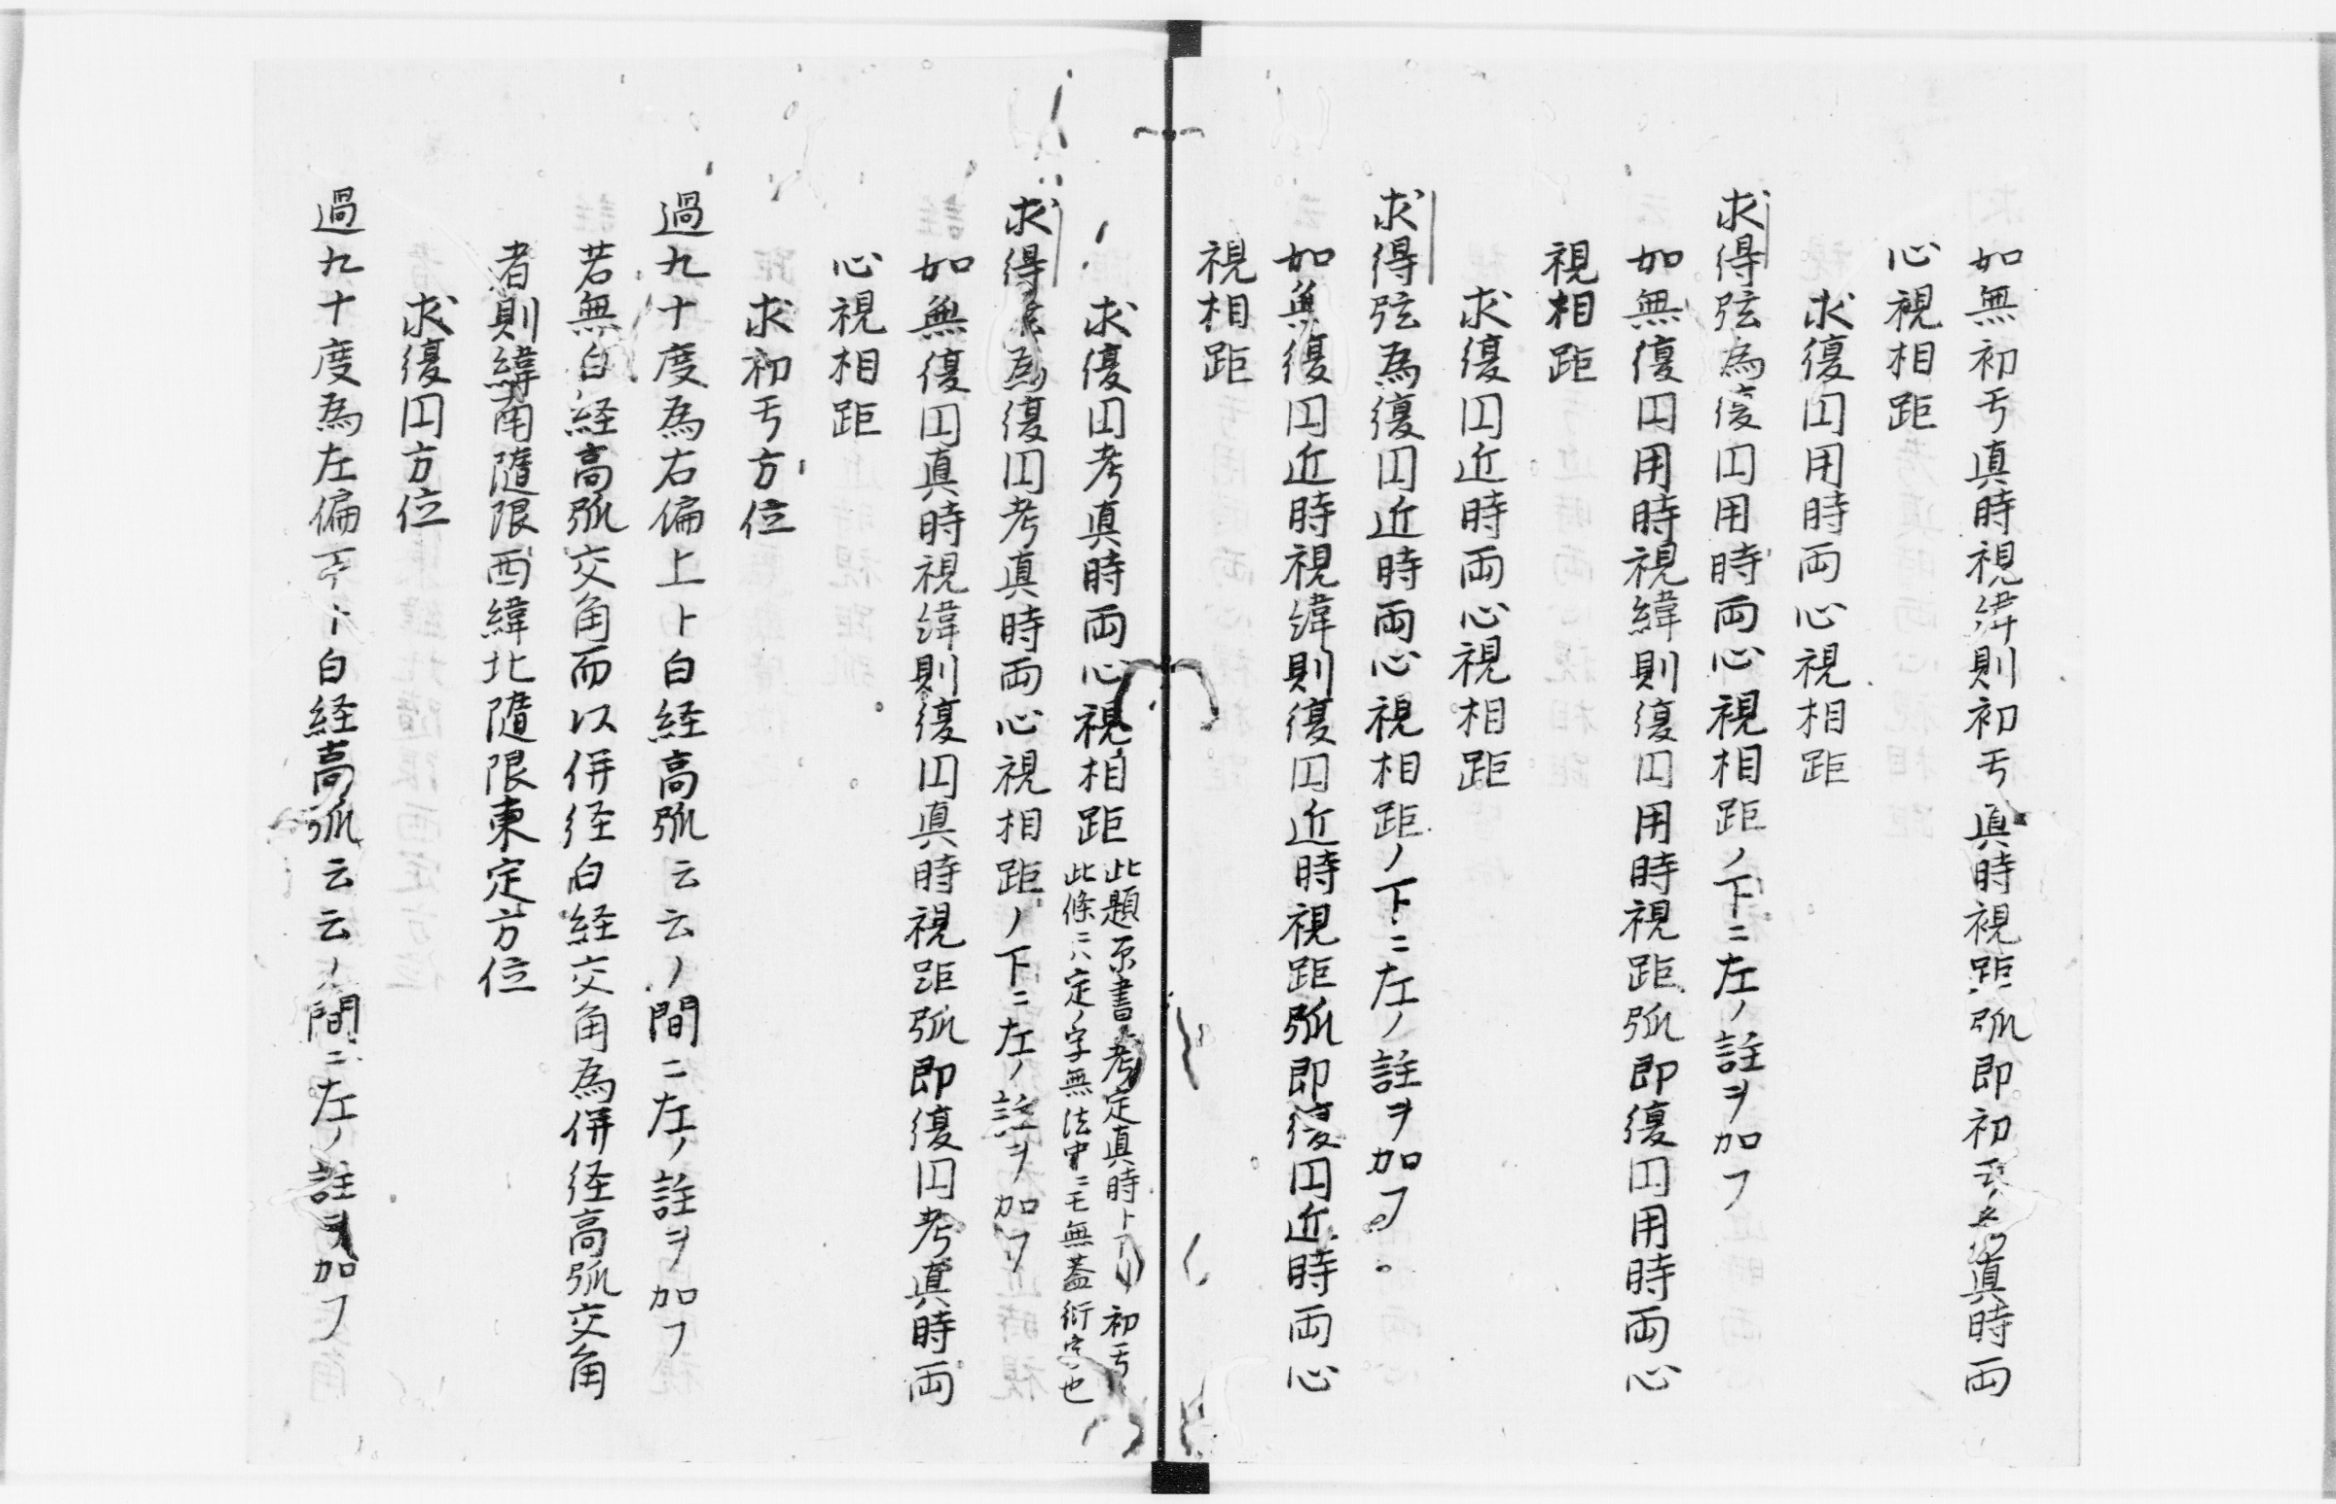 如無初亏真時視緯則初亏真時視距弧即初亏真時両
心視相距
求復円用時両心視相距
求得弦為復円用時両心視相距ノ下ニ左ノ註ヲ加フ
如無復円用時視緯則復円用時視距弧即復円用時両心
視相距
求復円近時両心視相距
求得弦為復円近時両心視相距ノ下ニ左ノ註ヲ加フ。
如無復円近時視緯則復円近時視距弧即復円近時両心
視相距
求復円考真時両心視相距
此題原書考定真時トアリ初亏
此條ニハ定ノ字無法中ニモ無蓋衍字也
求得為復円考真時両心視相距ノ下ニ左ノ註ヲ加フ
如無復円真時視緯則復円真時視距弧即復円考真時両
心視相距
求初亏方位
過九十度為右偏上ト白経高弧云云ノ間ニ左ノ註ヲ加フ
若無白経高弧交角而以併径白経交角為併径高弧交角
者則緯南随限西緯北随限東定方位
求復円方位
過九十度為左偏下ト白経高弧云云ノ間ニ左ノ註ヲ加フ